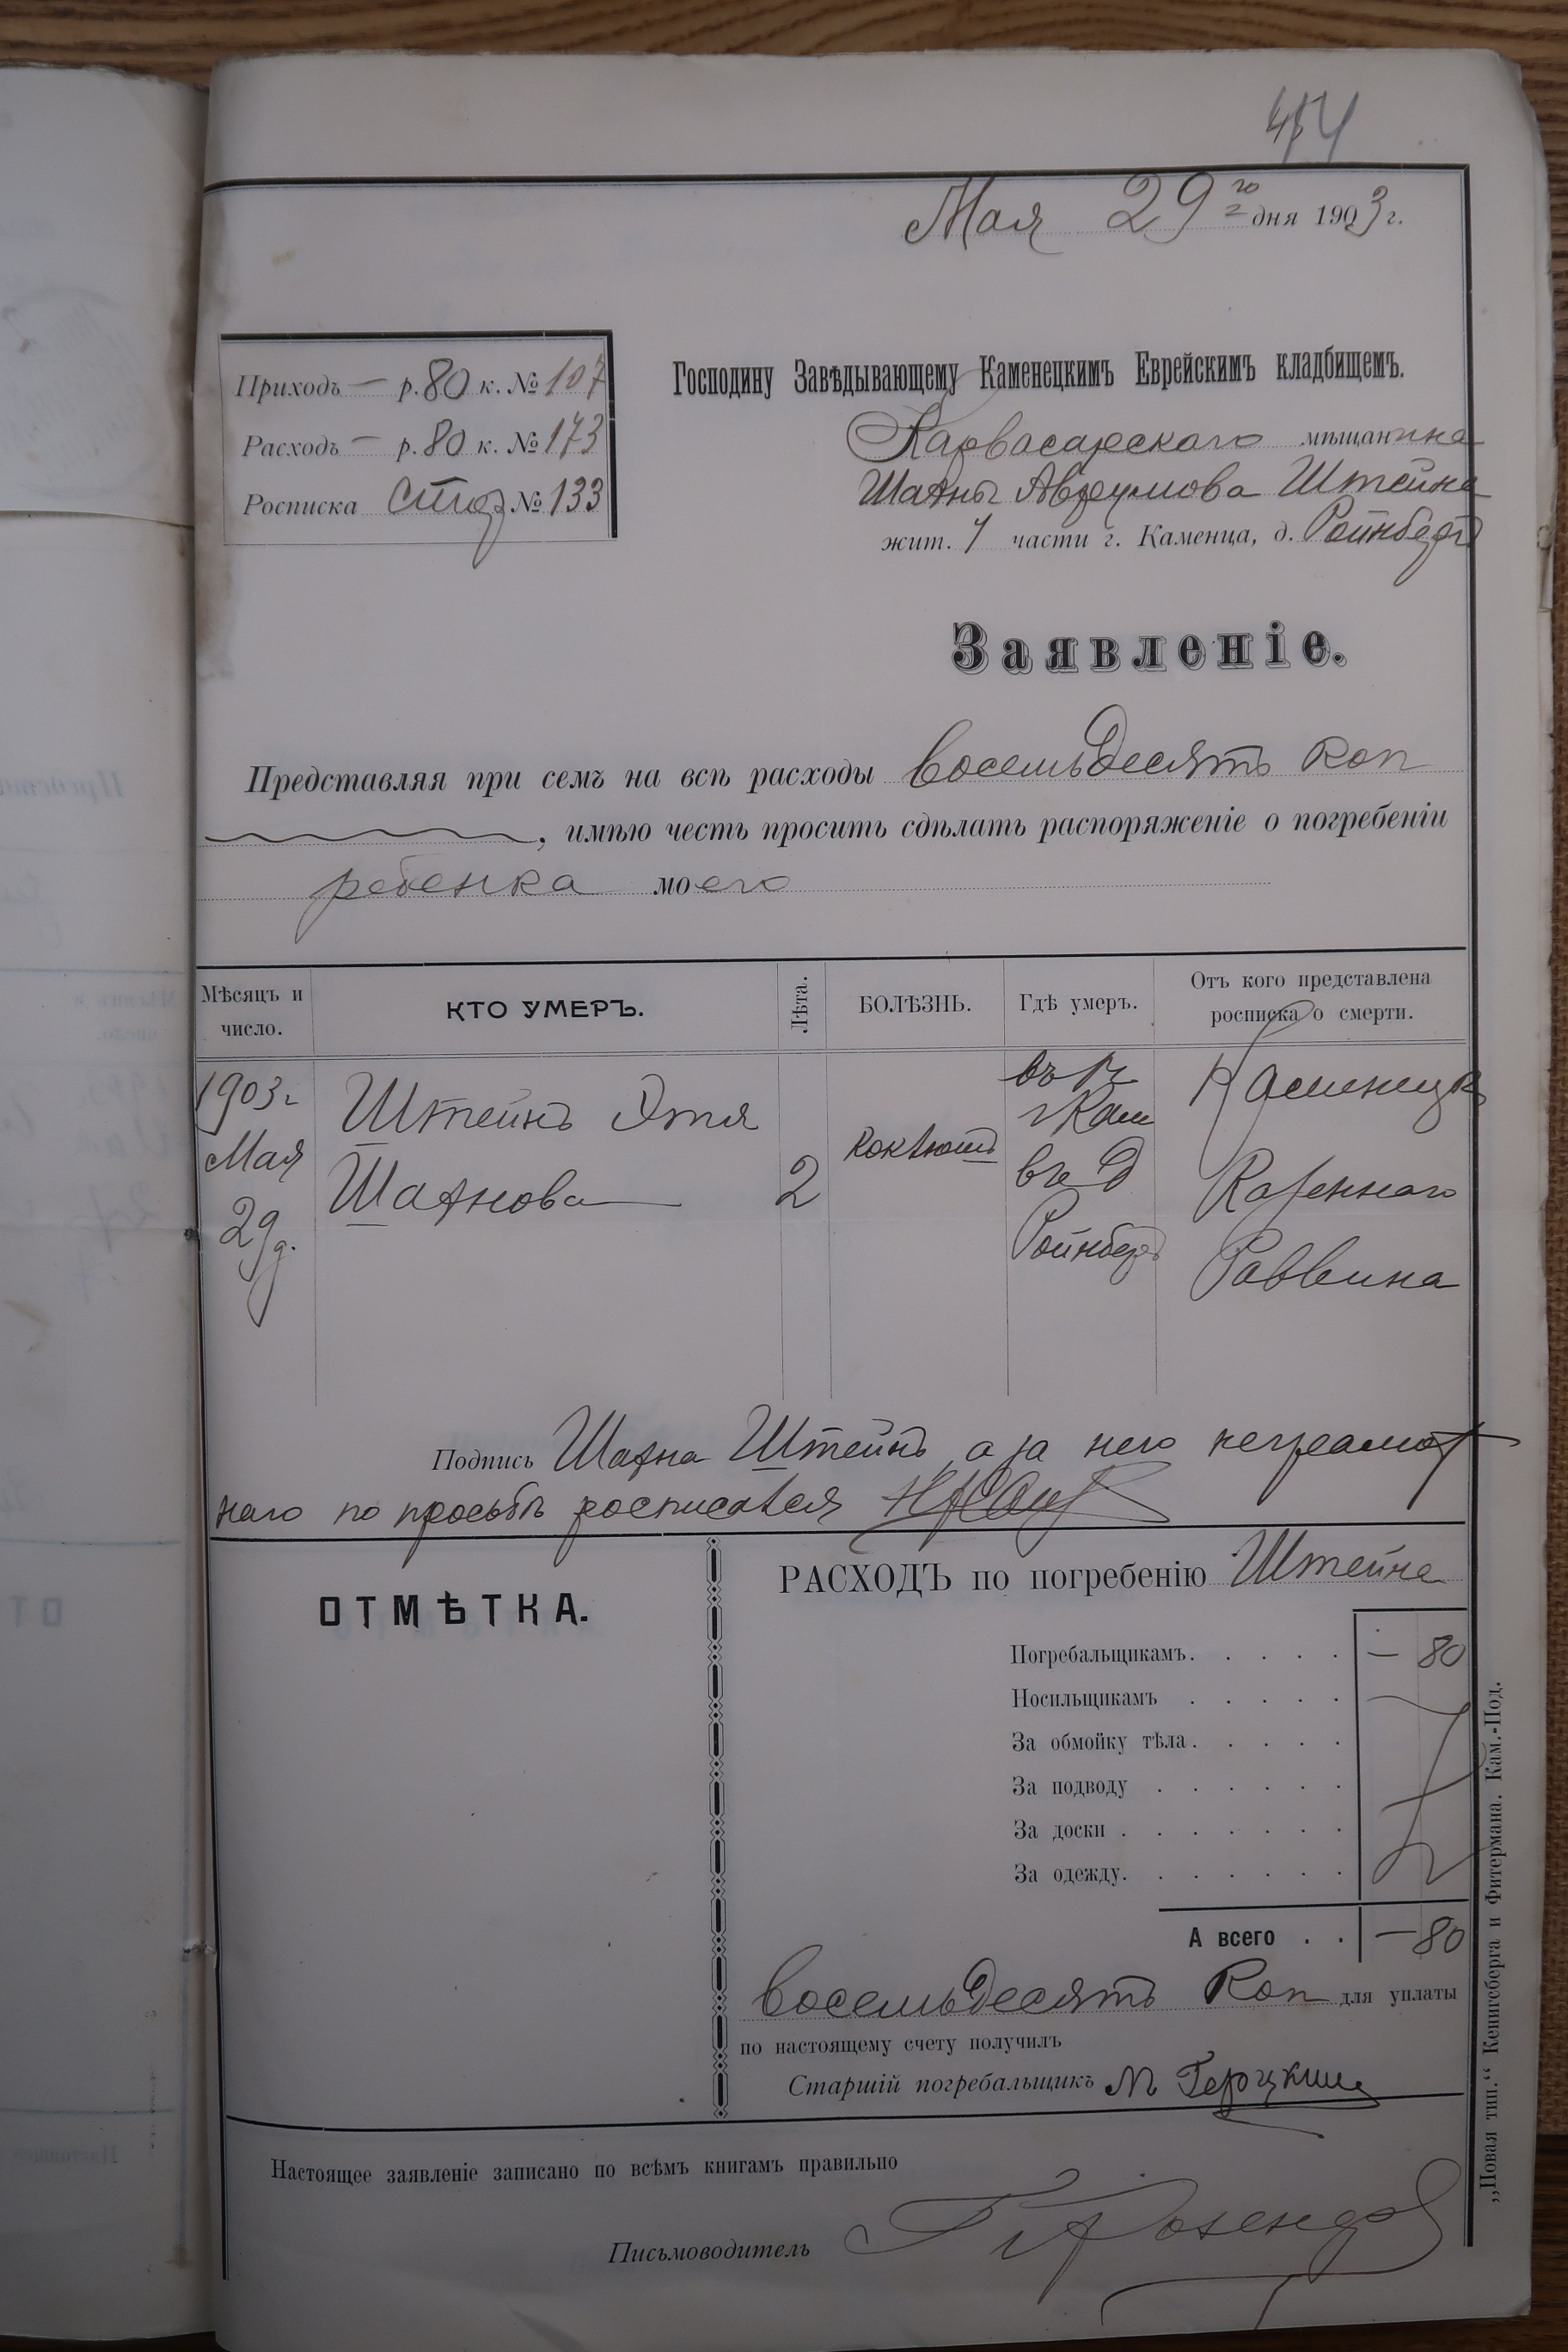 Мая 29го дня 1903 г.
Приходъ — р. 80 к. № 107
Расходъ — р. 80 к. № 173
Росписка № 133
Господину Завѣдывающему Каменецкимъ Еврейскимъ кладбищемъ.
Карвасарского мѣщанина
Шахны Аврумова Штейна
жит. 1 части г. Каменца, д. Ройнберг
Заявленіе.
Представляя при семъ на всѣ расходы восемьдесятъ коп
, имѣю честь просить сдѣлать распоряженіе о погребеніи
ребенка моего
Мѣсяцъ и число. КТО УМЕРЪ. Лѣта. БОЛѢЗНЬ. Гдѣ умеръ. Отъ кого представлена росписка о смерти.
1903 г Мая 29 д. Штейнъ Этя Шахнова 2 коклюшъ г Кам въ д Ройнберг Каменецк Казеннаго Раввина
Подпись Шахна Штейнъ, а за него неграмот
наго по просьбѣ росписался
ОТМѢТКА.
РАСХОДЪ по погребенію Штейна
Погребальщикамъ. — 80
Носильщикамъ
За обмойку тѣла.
За подводу
За доски
За одежду.
А всего — 80
восемьдесятъ Коп для уплаты
по настоящему счету получилъ
Старшій погребальщикъ М
Настоящее заявленіе записано по всѣмъ книгамъ правильно
Письмоводитель
„Новая тип.“ Кенигсберга и Фитермана. Кам.-Под.